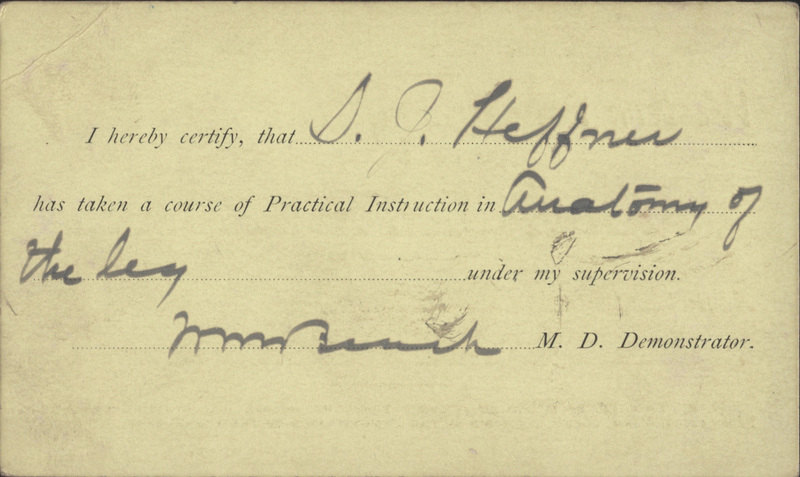 I hereby certify, that S. J. Heffner
has taken a course of Practical Instruction in Anatomy of
the leg under my supervision.
M. D. Demonstrator.